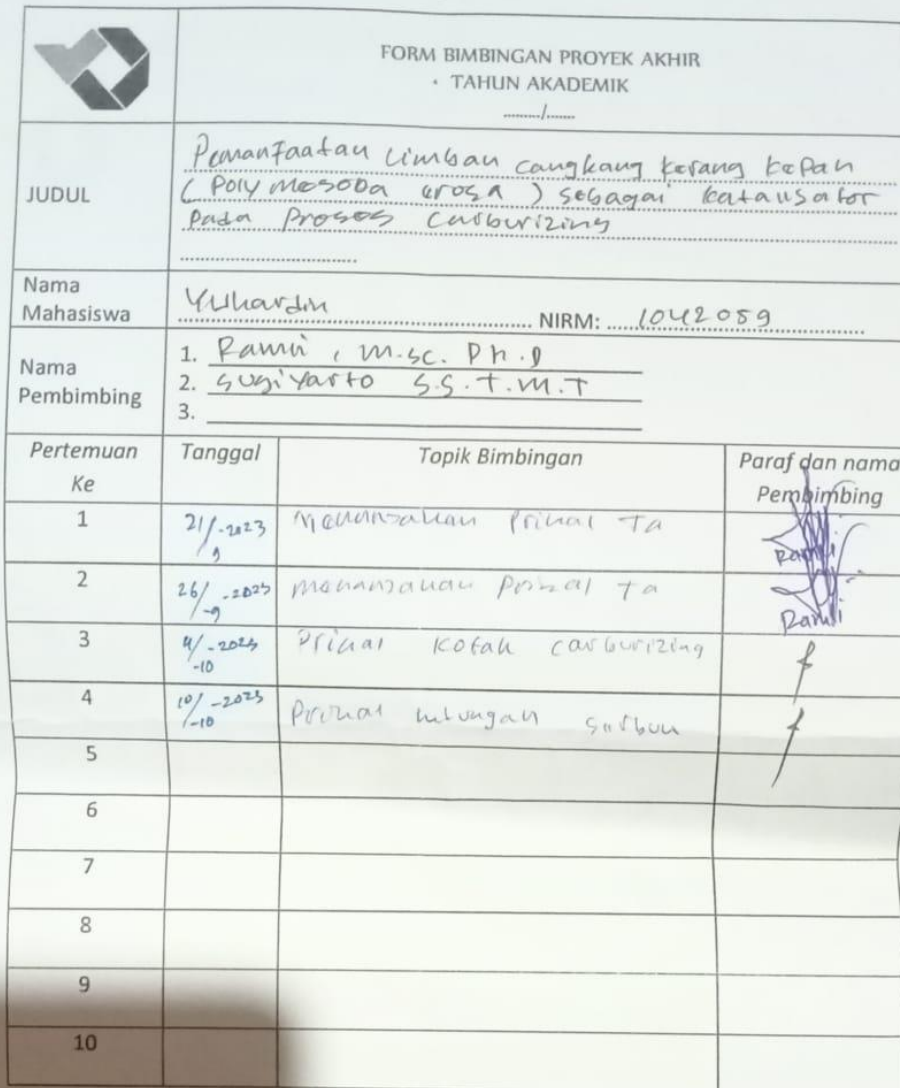 FORM BIMBINGAN PROYEK AKHIR
TAHUN AKADEMIK
........./.......
JUDUL
Pemanfaatan Limbah cangkang kerang kepah
(Poly mesoda erosa) sebagai katalisator
Pada Proses Carburizing
Nama
Mahasiswa
Yuhardin NIRM: 1042059
Nama
Pembimbing
1. Ramli, M.sc. Ph.D
2. Sugiyarto S.S.T.M.T
3.
Pertemuan Ke Tanggal Topik Bimbingan Paraf dan nama Pembimbing
1 21/9-2023 Ta Ramli
2 26/-9-2023 Ta Ramli
3 4/-10-2023 Kotak carburizing
4 10/-10-2023
5
6
7
8
9
10